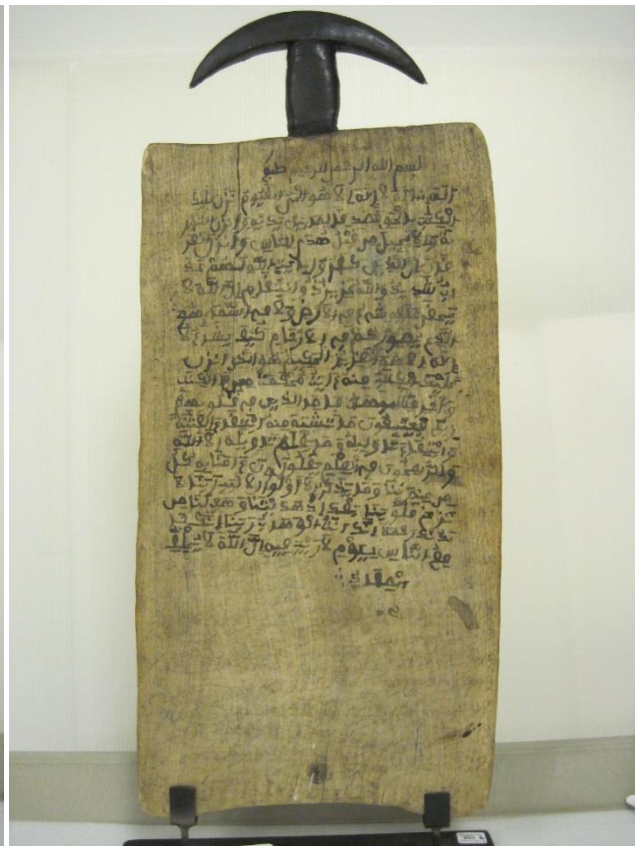 بسم الله الرحمن الرحيم
الم الله لا اله الا هو الحي القيوم نزل عليك
الكتب بالحق مصدقا لما بين يديه وانزل التور
ية والانجيل من قبل هدى للناس وانزل الفر
قان ان الذين كفروا بايت الله لهم عذ
اب شديد والله عزيز ذو انتقام ان الله لا
يخفى عليه شيء في الارض ولا في السماء هو
الذي يصوركم في الارحام كيف يشاء لا
اله الا هو العزيز الحكيم هو الذي انزل
عليك الكتب منه ءايت محكمت هن ام الكتب
واخر متشبهت فاما الذين في قلوبهم
زيغ فيتبعون ما تشبه منه ابتغاء الفتنة
وابتغاء تاويله وما يعلم تاويله الا الله
والرسخون في العلم يقولون ءامنا به كل
من عند ربنا وما يذكر الا اولوا الالبب ربنا لا
تزغ قلوبنا بعد اذ هديتنا وهب لنا من
لدنك رحمة انك انت الوهاب ربنا انك جا
مع الناس ليوم لا ريب فيه ان الله لا يخلف
الميعاد